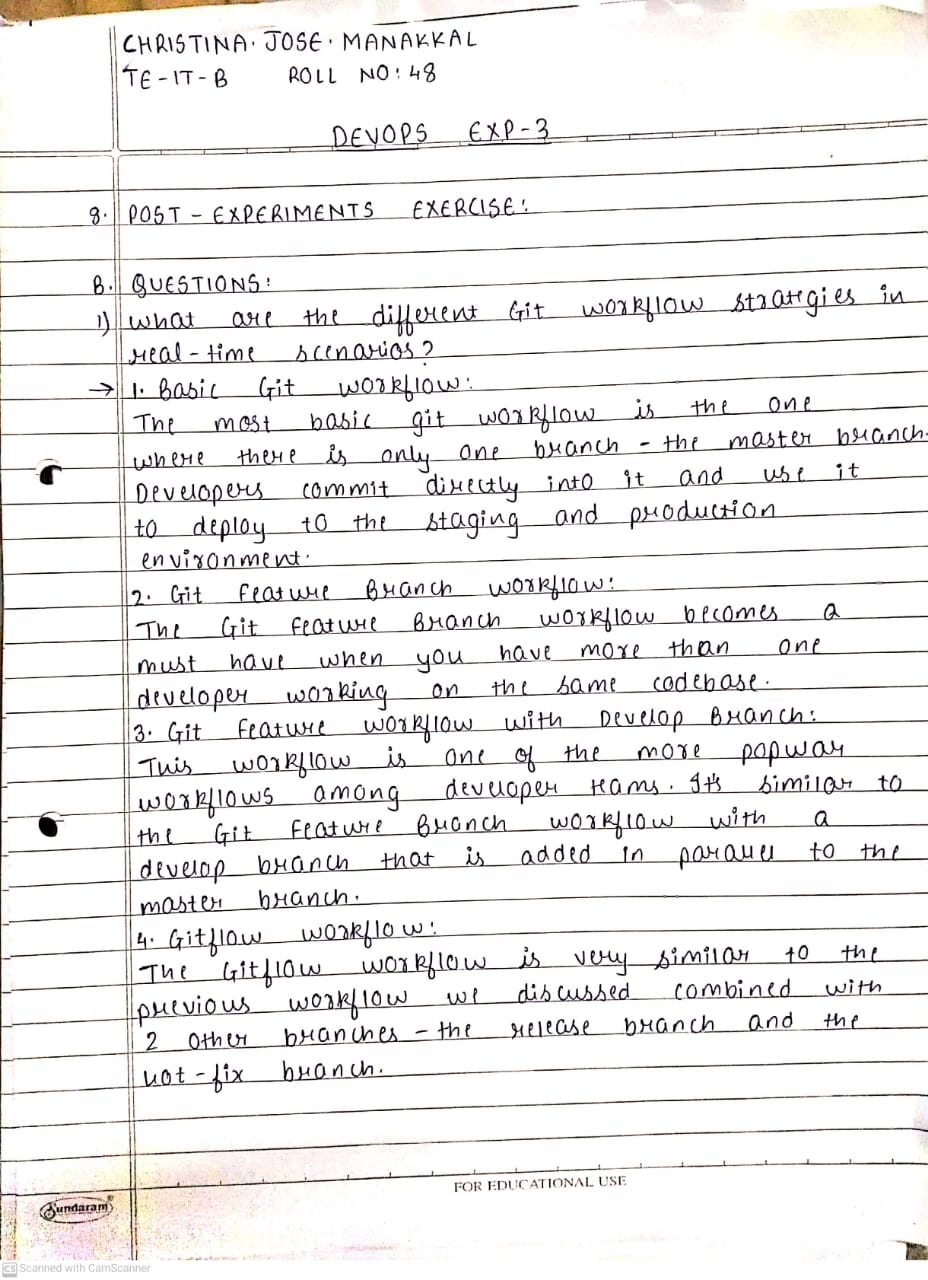 CHRISTINA. JOSE. MANAKKAL
TE-IT-B ROLL NO: 48
DEVOPS EXP-3
8. POST - EXPERIMENTS EXERCISE:
B. QUESTIONS:
1) What are the different Git workflow stratgies in
real-time scenarios?
→ 1. Basic Git workflow:
The most basic git workflow is the one
where there is only one branch - the master branch.
Developers commit directly into it and use it
to deploy to the staging and production
environment.
2. Git Feature Branch workflow:
The Git Feature Branch workflow becomes a
must have when you have more than one
developer working on the same codebase.
3. Git Feature workflow with Develop Branch:
This workflow is one of the more popular
workflows among developer teams. It's similar to
the Git Feature Branch workflow with a
develop branch that is added in parallel to the
master branch.
4. Gitflow workflow:
The Gitflow workflow is very similar to the
previous workflow we discussed combined with
2 other branches - the release branch and the
hot-fix branch.
FOR EDUCATIONAL USE
Sundaram®
CS Scanned with CamScanner